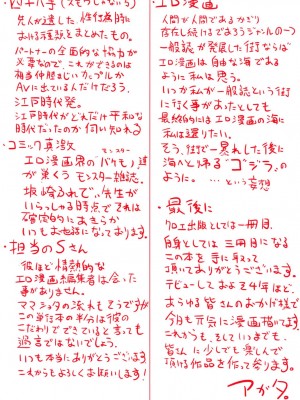 四十八手(スモウじゃないよ)
先人が遺した、性行為時に
おける種類をまとめたもの。
パートナーの全面的な協力が
必要なので、これができるのは
相当仲睦まじいカップルか
AVに出ている人だけだろう。
江戸時代発。
江戸時代がどんだけ平和な
時代だったのか伺い知れる
・コミック真激
モンスター
エロ漫画界のバケモノ達
が巣くうモンスター雑誌。
坂崎ふれでぃ先生が
いらっしゃる時点でそれは
確定的にあきらか
いつもお世話になっております。
・担当のSさん
彼ほど情熱的な
エロ漫画編集者は会った
事がありません。
ママショタの流れもそうですが
この単行本の半分は彼の
こだわりでできていると言っても
過言ではないでしょう。
いつも本当にありがとうございます
これからもよろしくお願いします!
・エロ漫画
人間が人間であるかぎり
存在し続けるであろうジャンルの一つ
一般誌が発展した街ならば
エロ漫画は自由な海である
ように私は思う。
いつか私が一般誌という街
に行く事があったとしても
最終的にはエロ漫画の海に
私は還りたい。
そう、街で一暴れした後に
海へと帰る"ゴジラ"の
ように。…という妄想
・最後に
クロエ出版としては一冊目、
自身としては三冊目になる
この本を手に取って
頂いてありがとうございます。
デビューしておよそ4年ほど、
あらゆる皆さんのおかげ様で
今日も元気に漫画描けてます
これからも、そしていつまでも、
皆んなに少しでも楽しんで
頂ける作品を作って参ります。
アガタ。